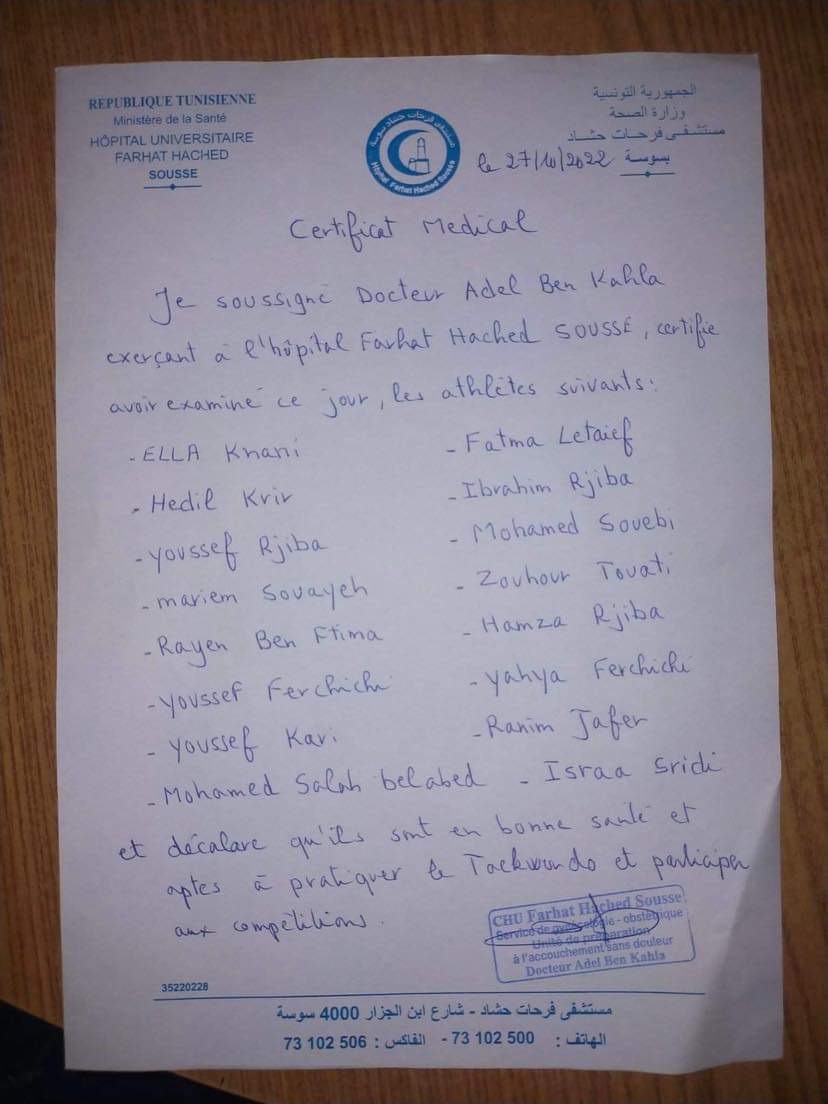 REPUBLIQUE TUNISIENNE
Ministère de la Santé
HÔPITAL UNIVERSITAIRE
FARHAT HACHED
SOUSSE
مستشفى فرحات حشاد سوسة
Hôpital Farhat Hached Sousse
الجمهورية التونسية
وزارة الصحة
مستشفى فرحات حشاد
بسوسة
le 27/10/2022
Certificat Medical
Je soussigné Docteur Adel Ben Kahla
exerçant à l'hôpital Farhat Hached SOUSSE, certifie
avoir examiné ce jour, les athlètes suivants:
- ELLA Knani - Fatma Letaief
- Hedil Krir - Ibrahim Rjiba
- Youssef Rjiba - Mohamed Souebi
- Mariem Souayeh - Zouhour Touati
- Rayen Ben Ftima - Hamza Rjiba
- Youssef Ferchichi - Yahya Ferchichi
- Youssef Kari - Ranim Jafer
- Mohamed Salah belabed - Israa Sridi
et décalare qu'ils sont en bonne santé et
aptes à pratiquer le Taekwondo et participer
aux compétitions.
CHU Farhat Hached Sousse
Service de gynécologie - obstétrique
Unité de préparation
à l'accouchement sans douleur
Docteur Adel Ben Kahla
35220228
مستشفى فرحات حشاد - شارع ابن الجزار 4000 سوسة
الهاتف : 73 102 500 - الفاكس : 73 102 506